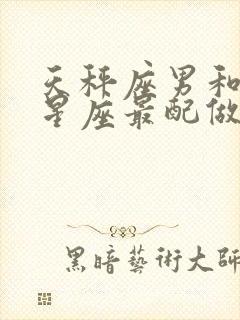 天秤座男和
星座最配做
黑暗藝術大師